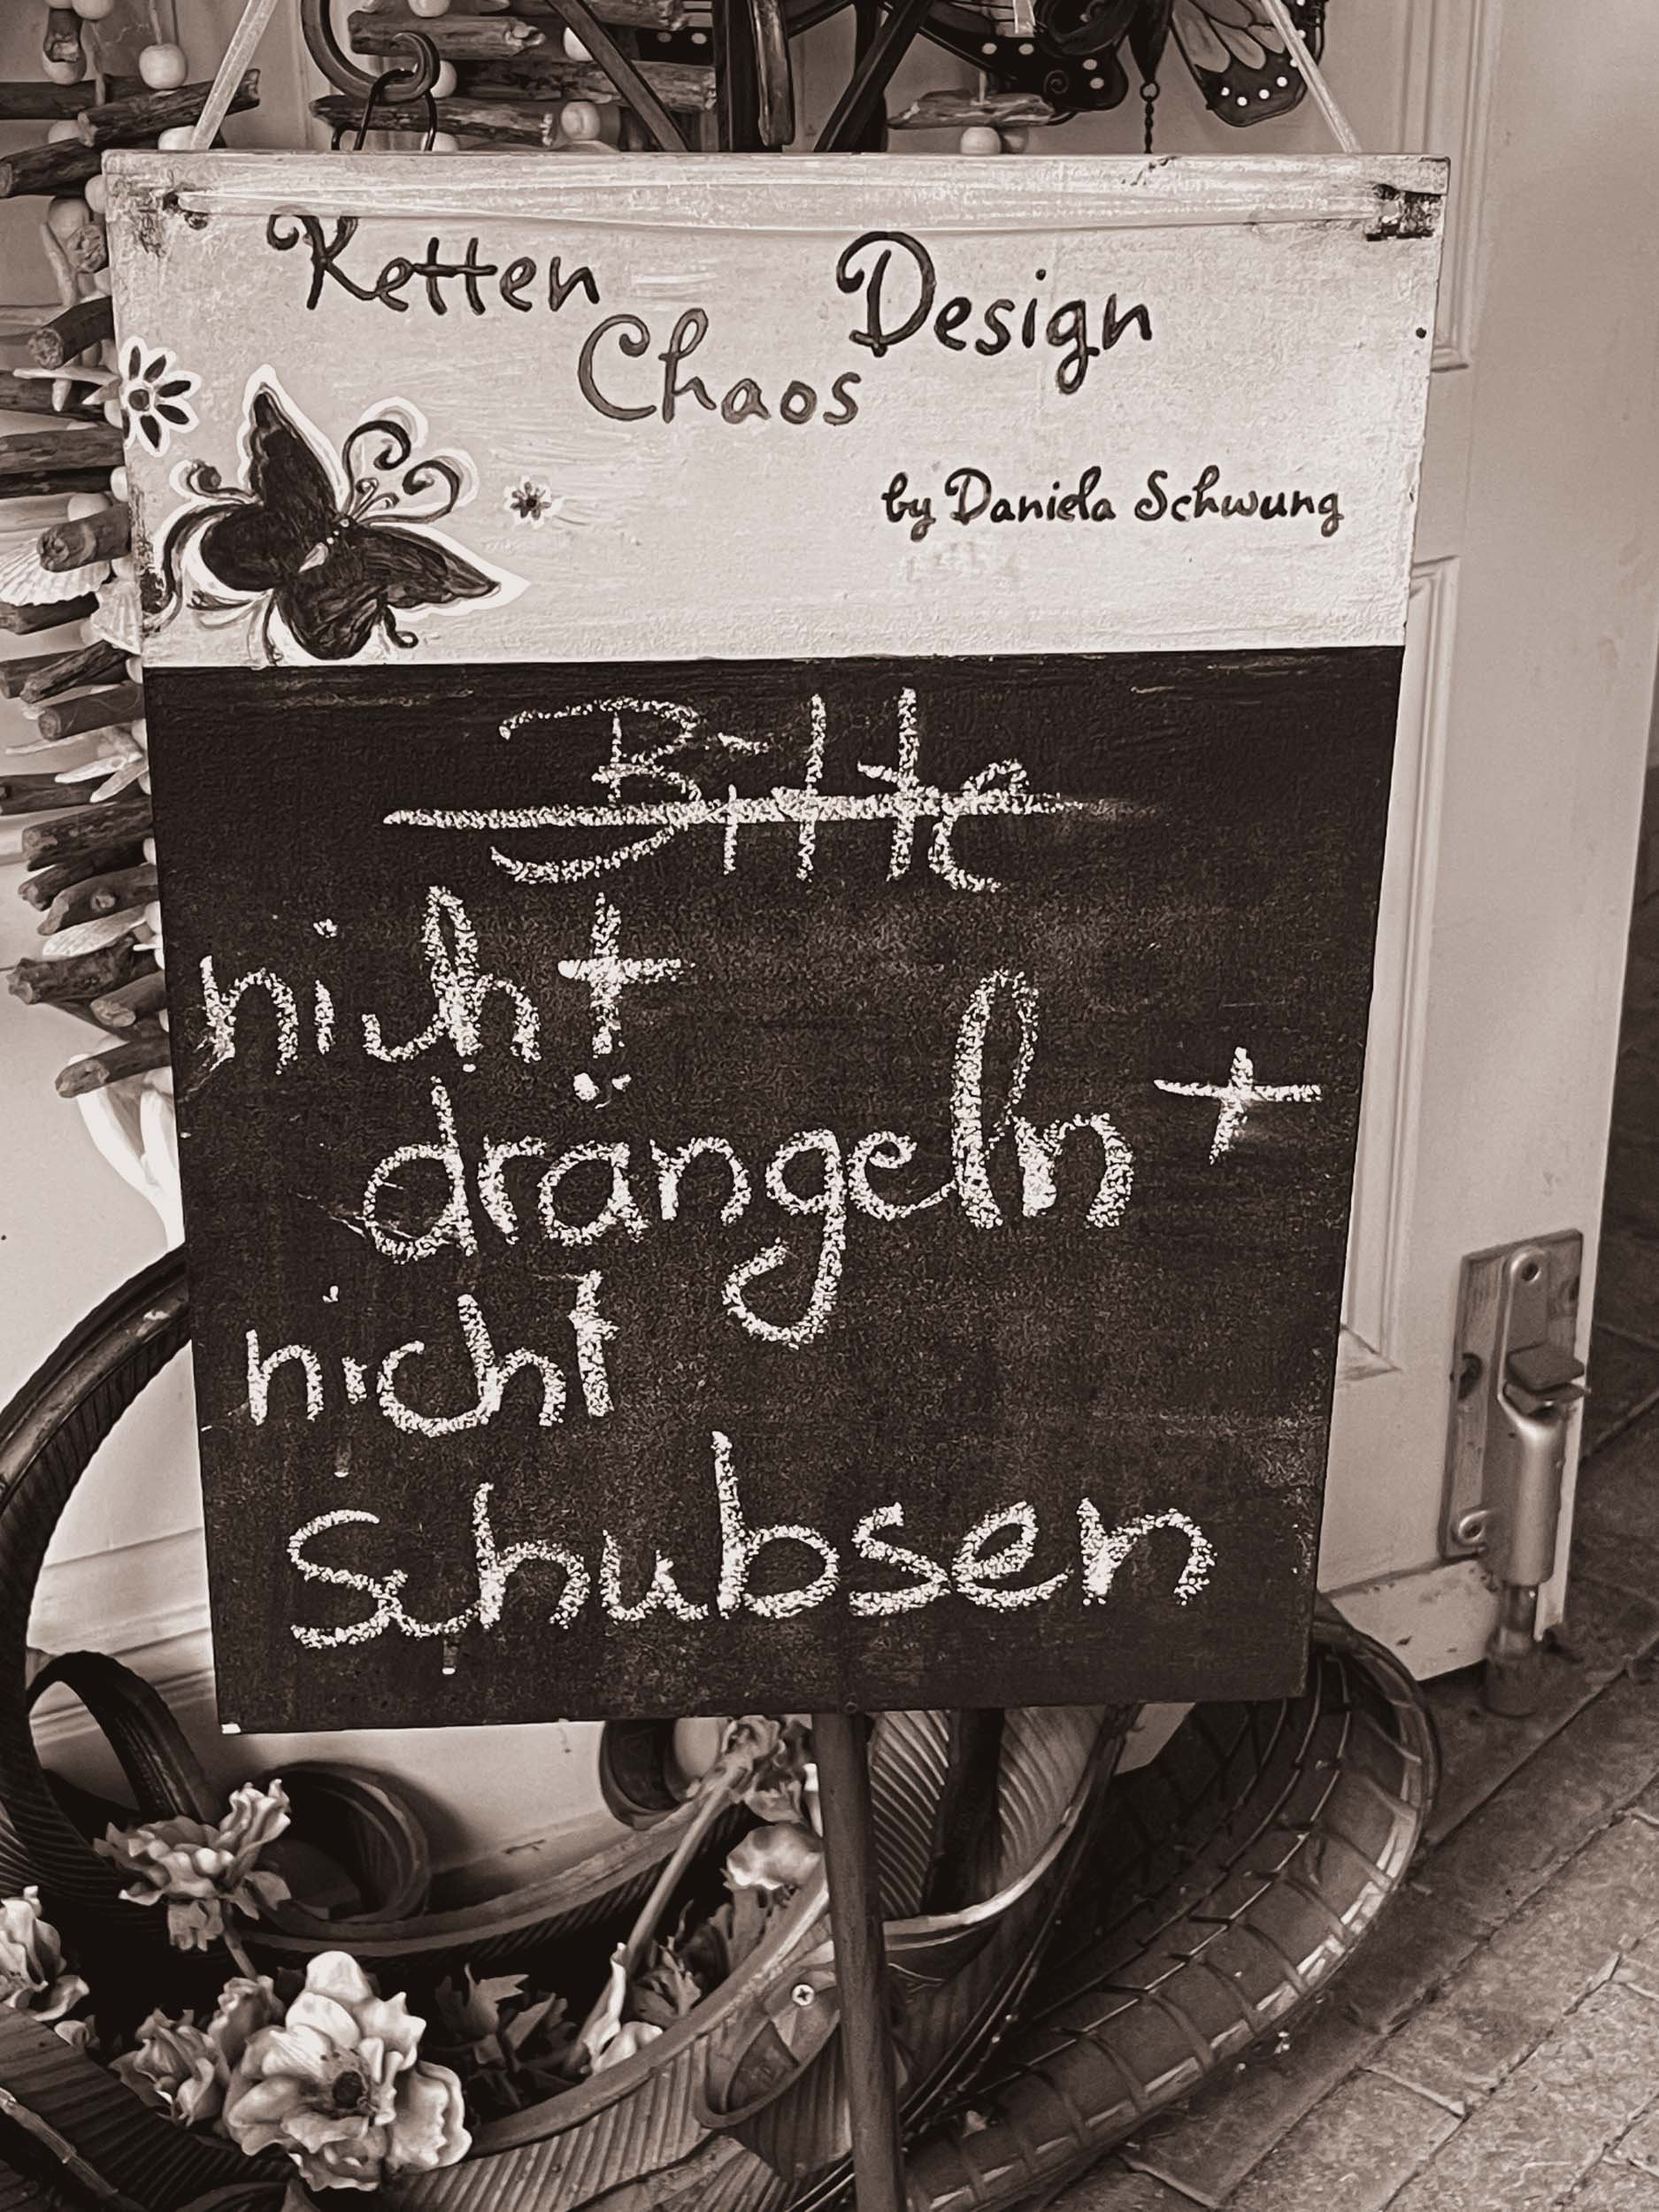 Ketten Design
Chaos
by Daniela Schwung
Bitte
nicht
drängeln +
nicht
schubsen